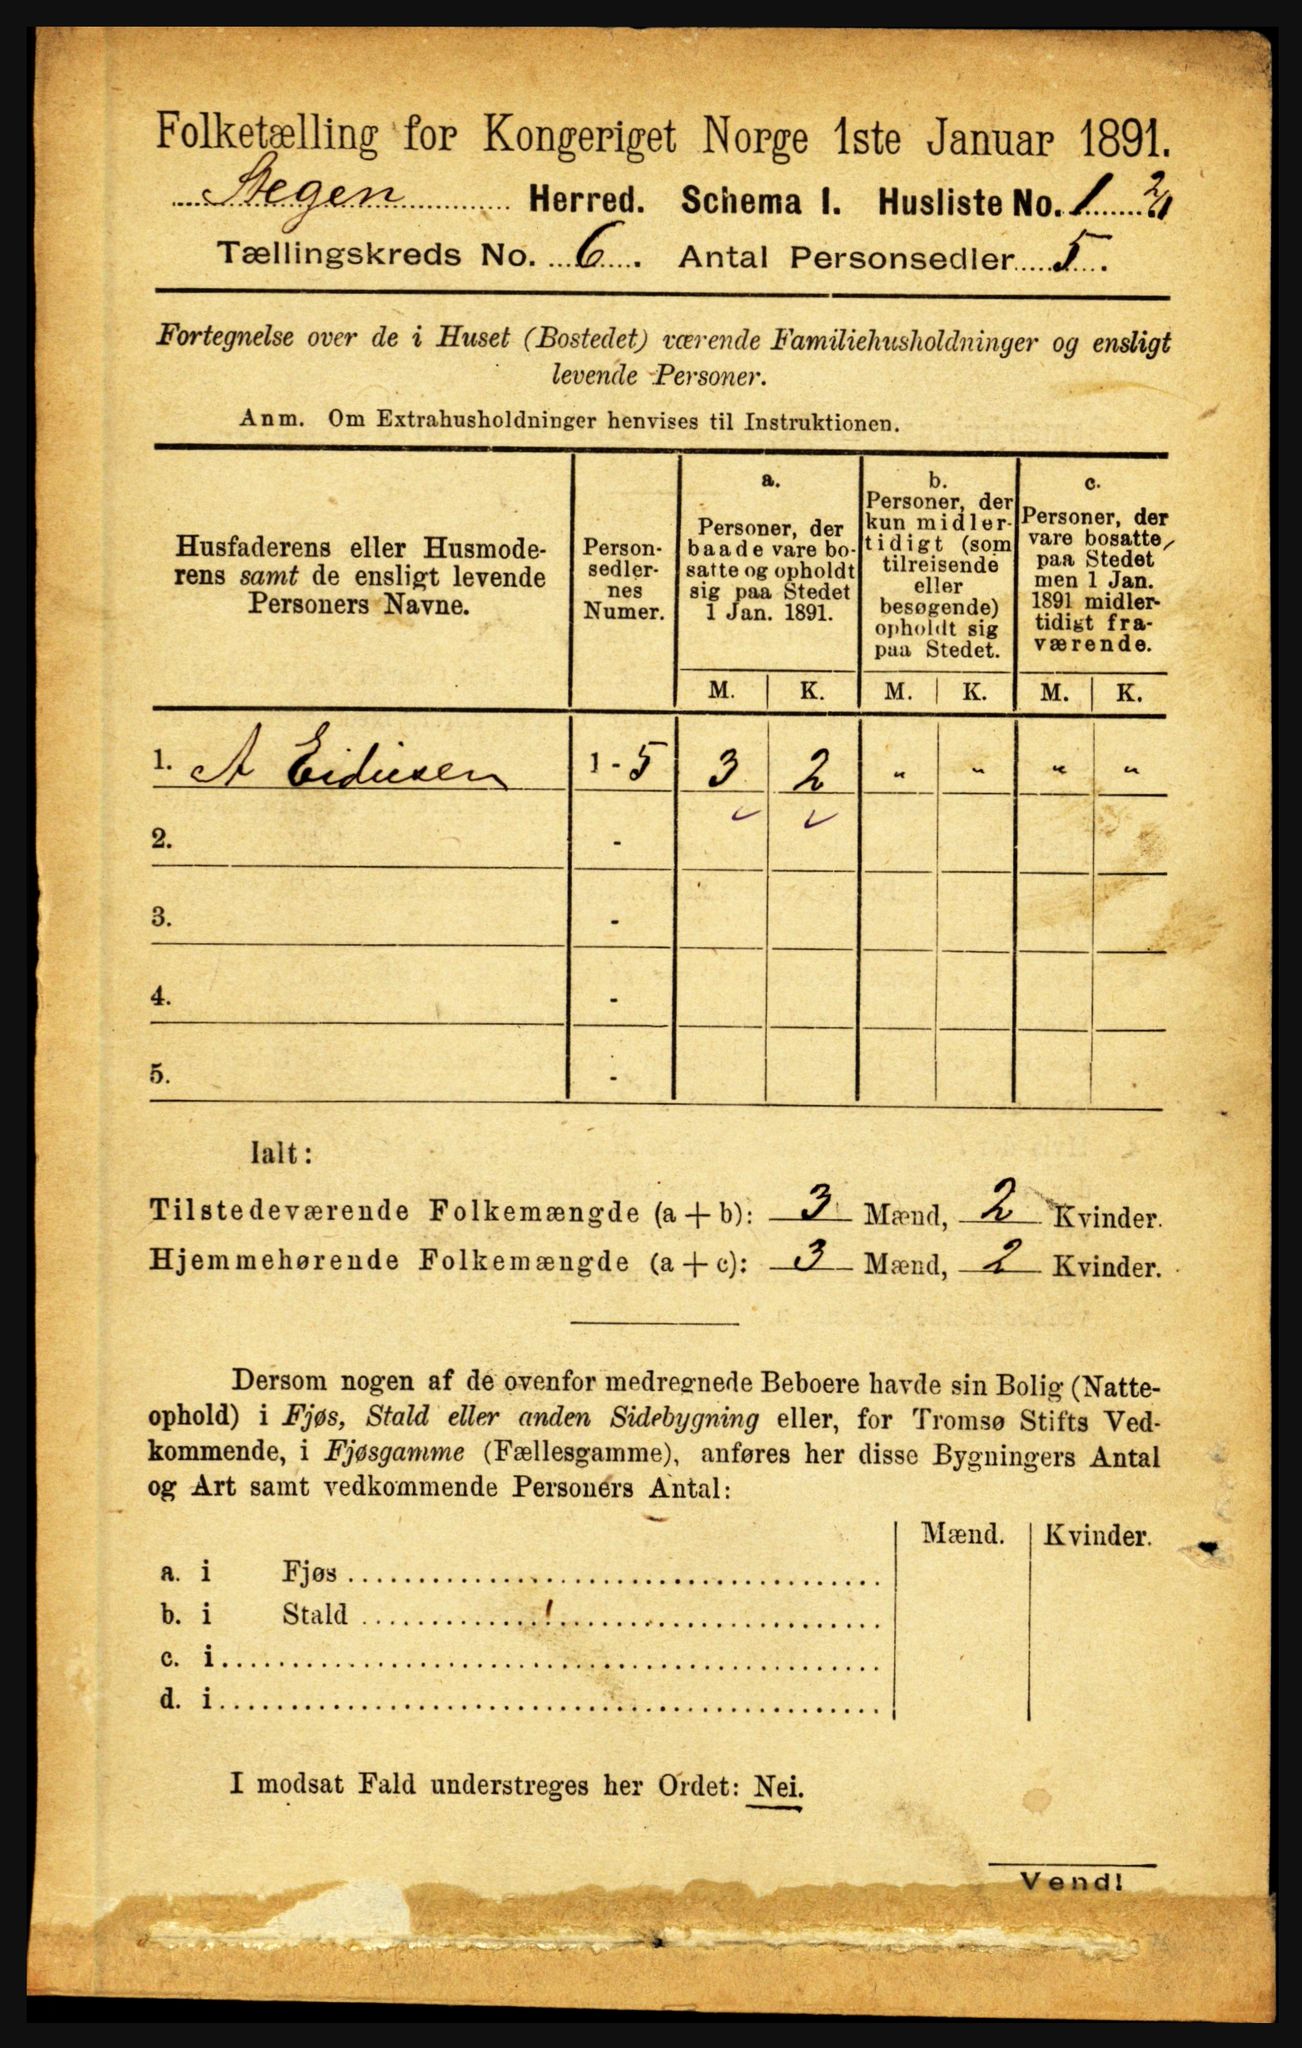 Folketælling for Kongeriget Norge 1ste Januar 1891.
Stegen Herred. Schema I. Husliste No. 1
Tællingskreds No. 6. Antal Personsedler 5.
Fortegnelse over de i Huset (Bostedet) værende Familiehusholdninger og ensligt
levende Personer.
Anm. Om Extrahusholdninger henvises til Instruktionen.
Husfaderens eller Husmode-
rens samt de ensligt levende
Personers Navne.
Person-
sedler-
nes
Numer.
a.
Personer, der
baade vare bo-
satte og opholdt
sig paa Stedet
1 Jan. 1891.
b.
Personer, der
kun midler-
tidigt (som
tilreisende
eller
besøgende)
opholdt sig
paa Stedet.
c.
Personer, der
vare bosatte
paa Stedet
men 1 Jan.
1891 midler-
tidigt fra-
værende.
M. K. M. K. M. K.
1. A Eidiesen 1 - 5 3 2 " " " "
2. -
3. -
4. -
5. -
Ialt:
Tilstedeværende Folkemængde (a + b): 3 Mænd, 2 Kvinder.
Hjemmehørende Folkemængde (a + c): 3 Mænd, 2 Kvinder.
Dersom nogen af de ovenfor medregnede Beboere havde sin Bolig (Natte-
ophold) i Fjøs, Stald eller anden Sidebygning eller, for Tromsø Stifts Ved-
kommende, i Fjøsgamme (Fællesgamme), anføres her disse Bygningers Antal
og Art samt vedkommende Personers Antal:
Mænd. Kvinder.
a. i Fjøs
b. i Stald
c. i
d. i
I modsat Fald understreges her Ordet: Nei.
Vend!